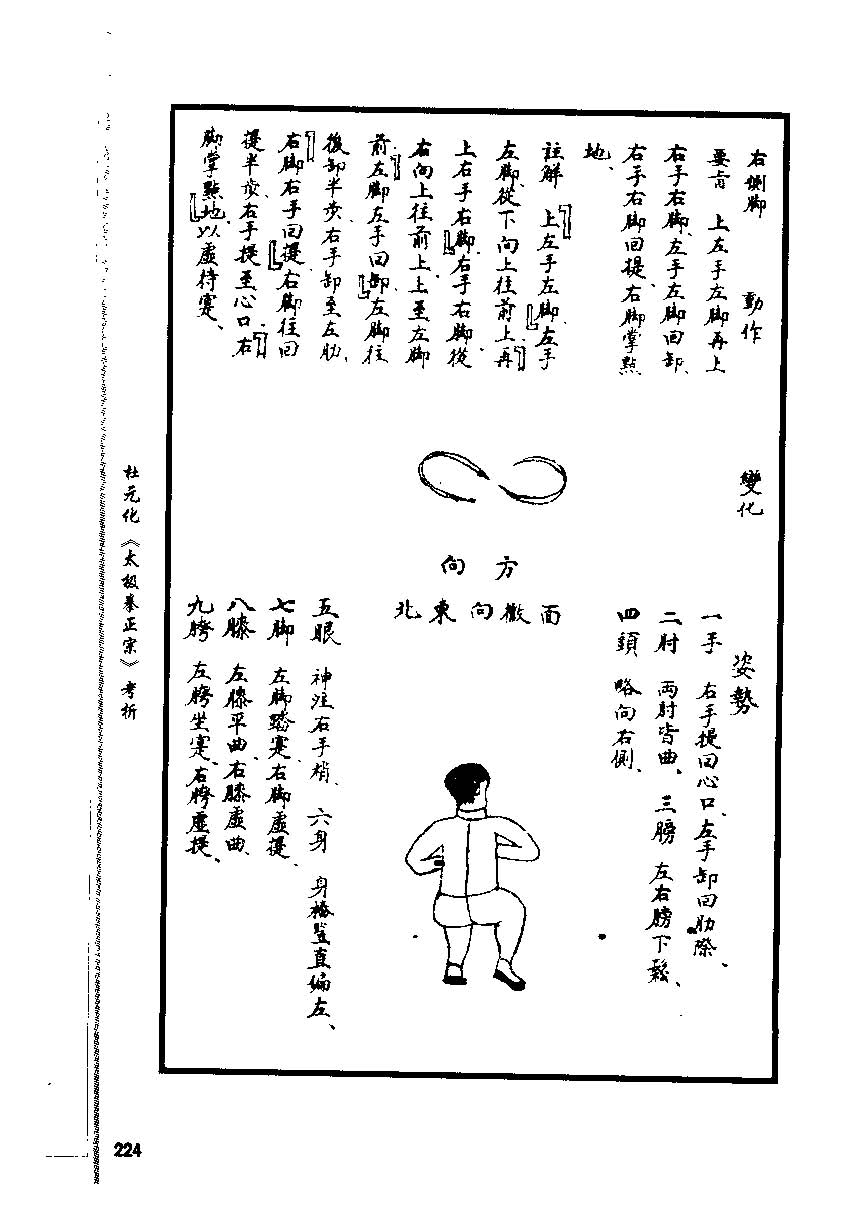 右側脚 動作 變化
要旨 上左手左脚再上
右手右脚、左手左脚回卸、
右手右脚回提、右脚掌點
地、
註解 「上左手左脚」、左手
左脚、從下向上往前上、「再
上右手右脚」、右手右脚、從
右向上往前上、上至左脚
前、「左脚左手回卸」、左脚往
後卸半步、右手卸至左肋、
「右脚右手回提」、右脚往回
提半步、右手提至心口、「右
脚掌點地」、以虛待寔、
方向
面微向東北
姿勢
一手 右手提回心口、左手卸回肋際、
二肘 兩肘皆曲、 三膀 左右膀下鬆、
四頭 略向右側、
五眼 神注右手梢、 六身 身樁豎直偏左、
七脚 左脚踏寔、右脚虛提、
八膝 左膝平曲、右膝虛曲、
九胯 左胯坐寔、右胯虛提、
杜元化《太极拳正宗》考析
224